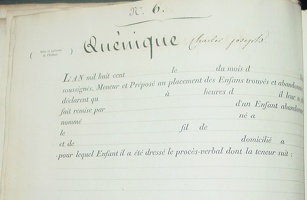 N.º 6.
Quénique (Charles Joseph)
L'AN mil huit cent le du mois d
soussignés, Meneur et Préposé au placement des Enfans trouvés et abandonn
déclarent qu à heures d d leur a
fait remise par d'un Enfant abandonn
nommé né a
le fil de
et de domicilié a
pour lequel Enfant il a été dressé le procès-verbal dont la teneur suit :